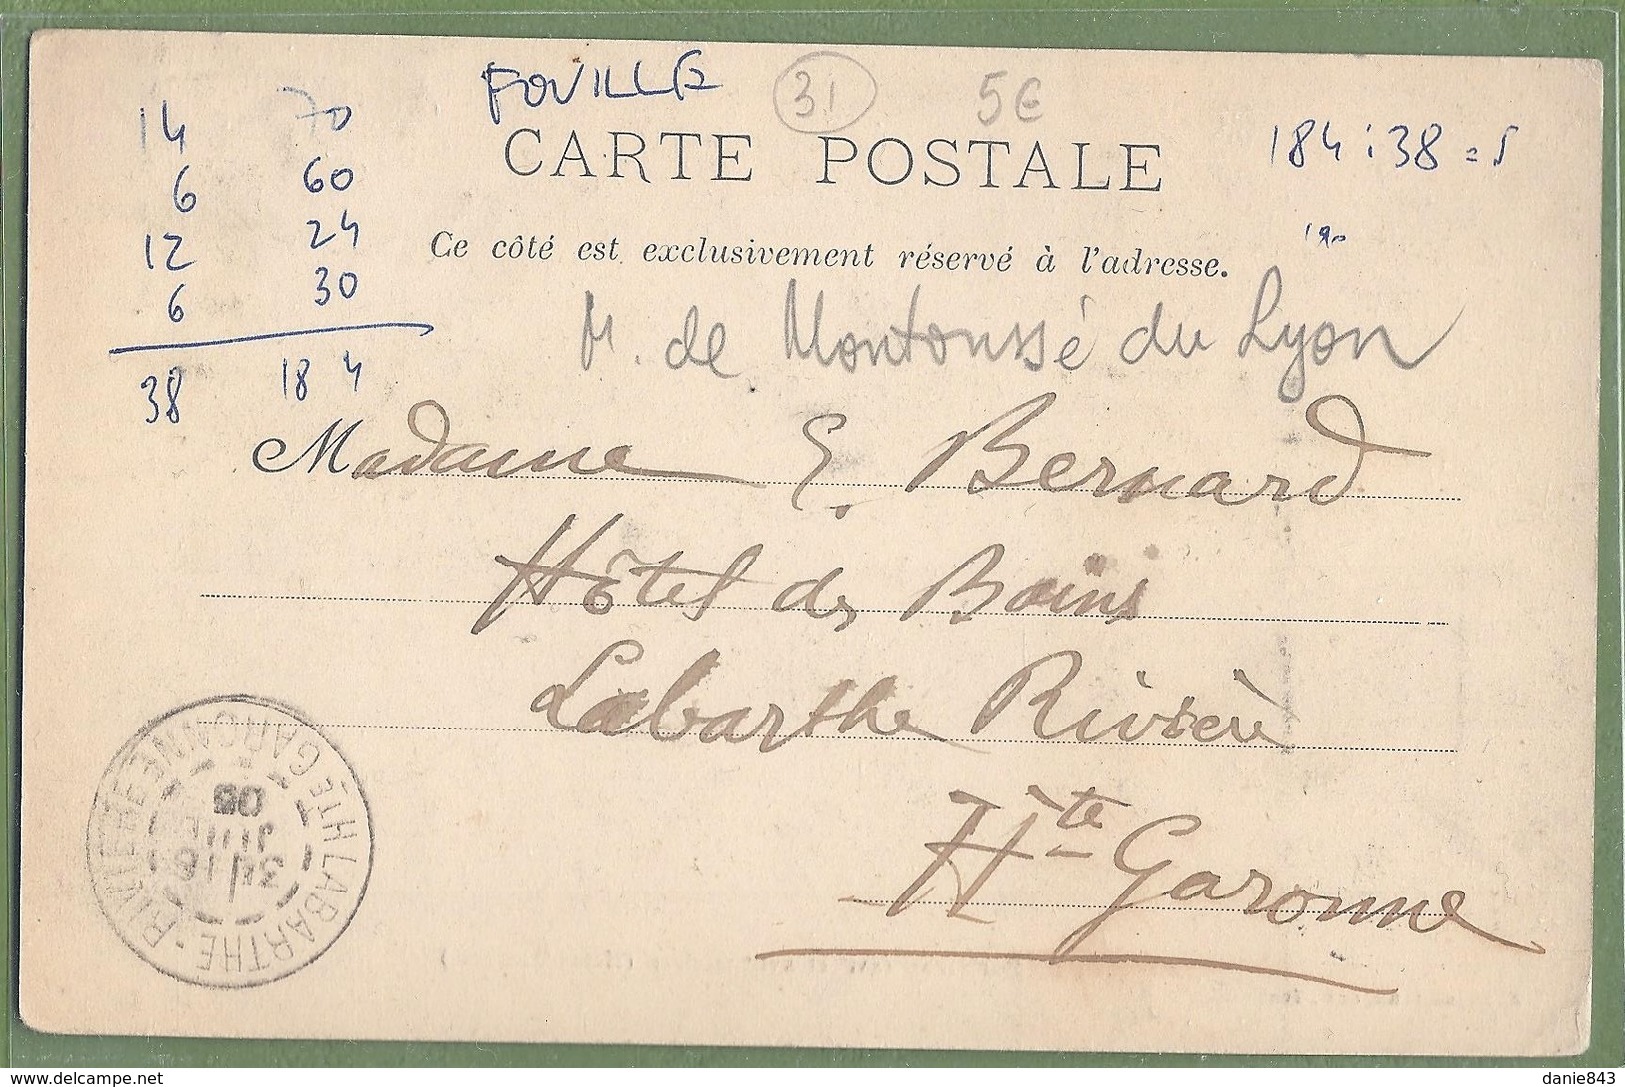 FOUILLE 31 5€
14 70
6 60
12 24
6 30
38 184
184 : 38 = 5
190
CARTE POSTALE
Ce côté est exclusivement réservé à l'adresse.
M. de Montoussé du Lyon
Madame E. Bernard
Hôtel des Bains
Labarthe Rivière
Hte Garonne
LABARTHE-RIVIERE HTE GARONNE
31
JUIL
05
www.delcampe.net
danie843